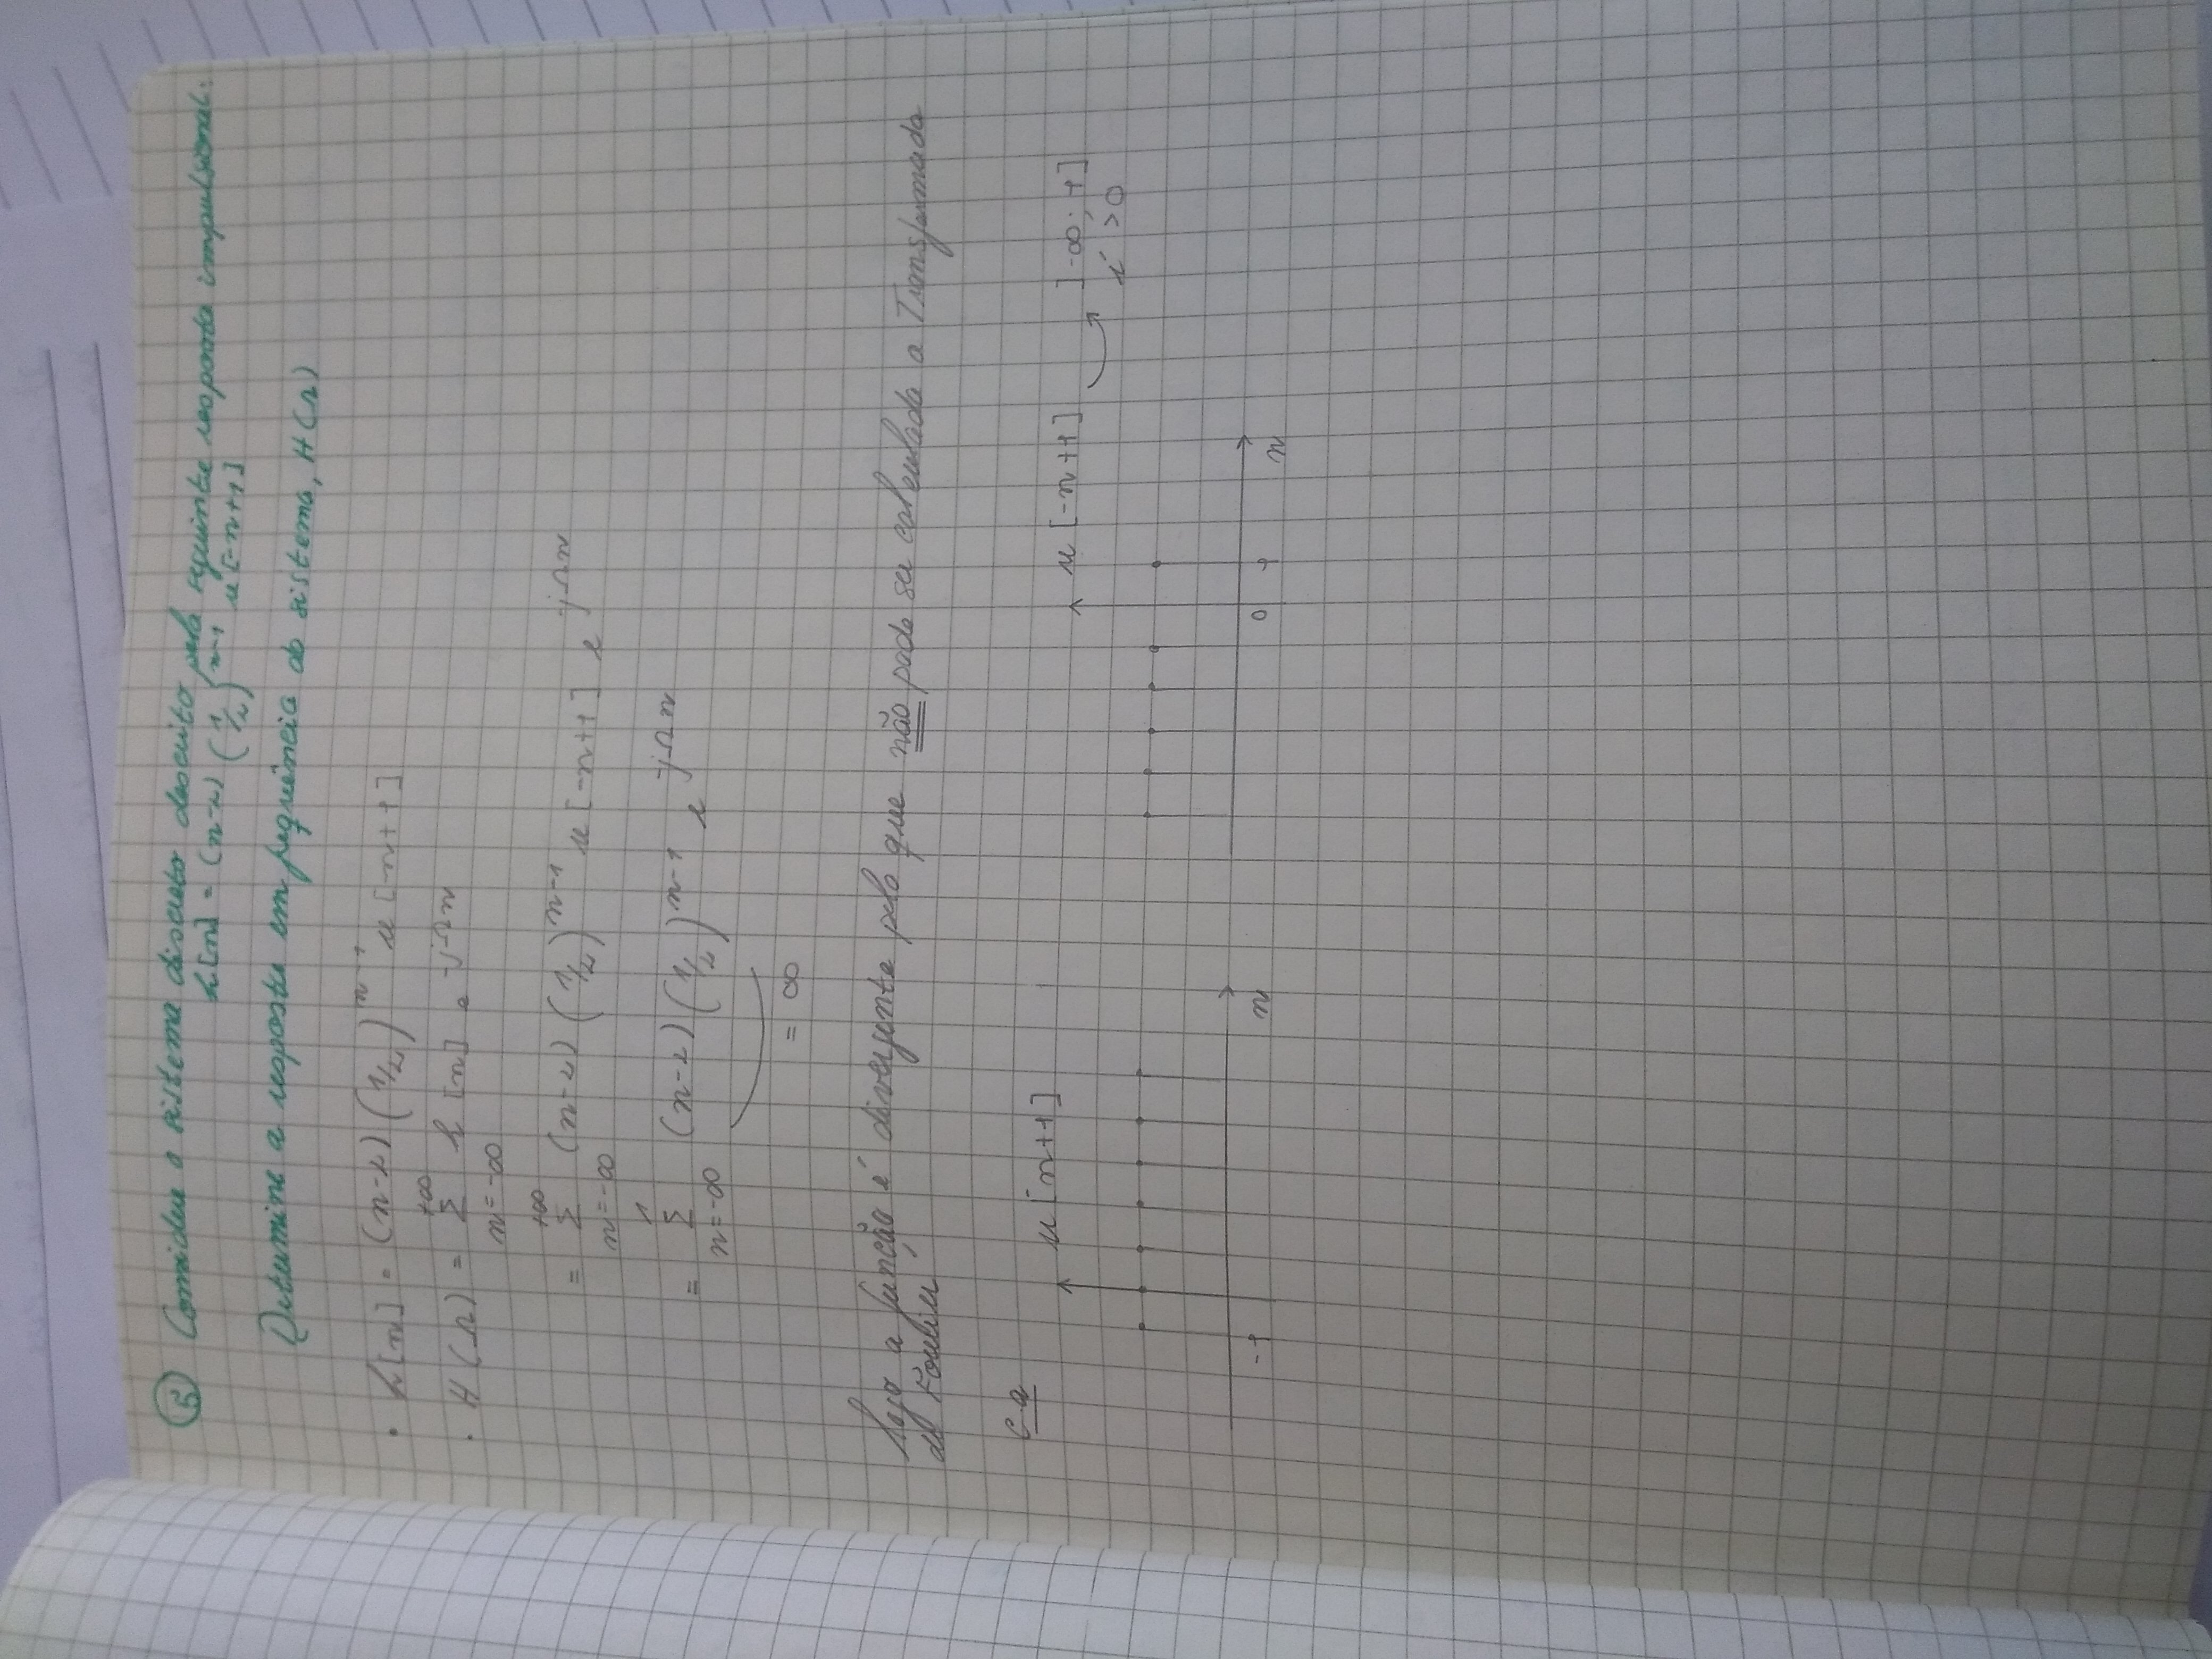 ⑤ Considere o sistema discreto descrito pela seguinte resposta impulsional:
h[n] = (n-2) (1/2)^{n-1} u[-n+1]
Determine a resposta em frequência do sistema, H(Ω)
• h[n] = (n-2) (1/2)^{n-1} u[-n+1]
• H(Ω) = Σ_{n=-∞}^{+∞} h[n] e^{-jΩn}
= Σ_{n=-∞}^{+∞} (n-2) (1/2)^{n-1} u[-n+1] e^{-jΩn}
= Σ_{n=-∞}^{1} (n-2) (1/2)^{n-1} e^{-jΩn}
= ∞
logo a função é divergente pelo que não pode ser calculada a Transformada
de Fourier
c.a
u[n+1]
u[-n+1] ]-∞; 1]
é >0
-1 n
0 1 n